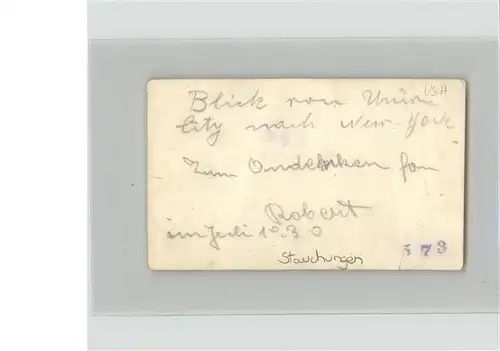 USA
Blick vom Union
City nach New-York
Zum Ondenken fon
Robert
im Juli 1930
Stauchungen
573